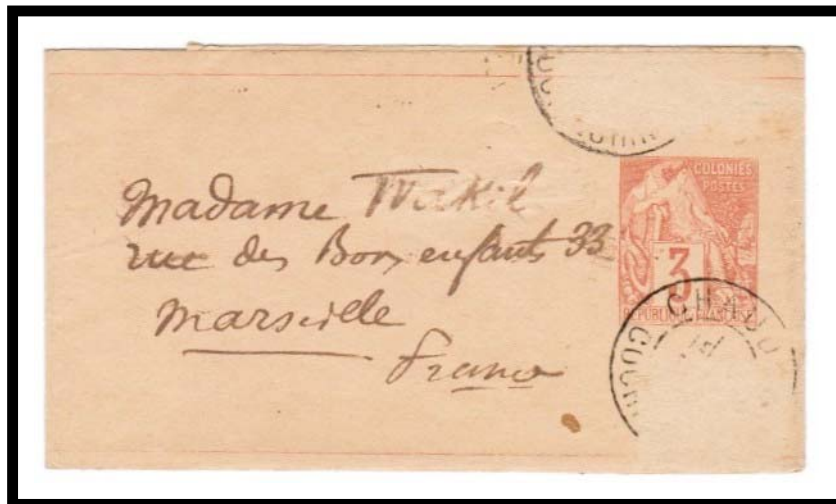 Madame
rue des Bons enfants 33
Marseille
France
COLONIES
POSTES
3
RÉPUBLIQUE FRANÇAISE
CHAU
COCH